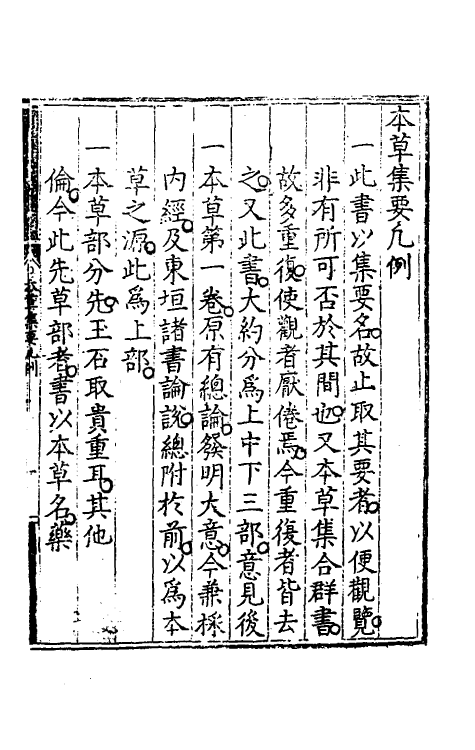 本草集要凡例
一此書以集要名故止取其要者以便觀覽
非有所可否於其間也又本草集合群書
故多重復使觀者厭倦焉今重復者皆去
之又此書大約分爲上中下三部意見後
一本草第一卷原有總論發明大意今兼採
内經及東垣諸書論說總附於前以爲本
草之源此爲上部
一本草部分先玉石取貴重耳其他
倫今此先草部者書以本草名藥